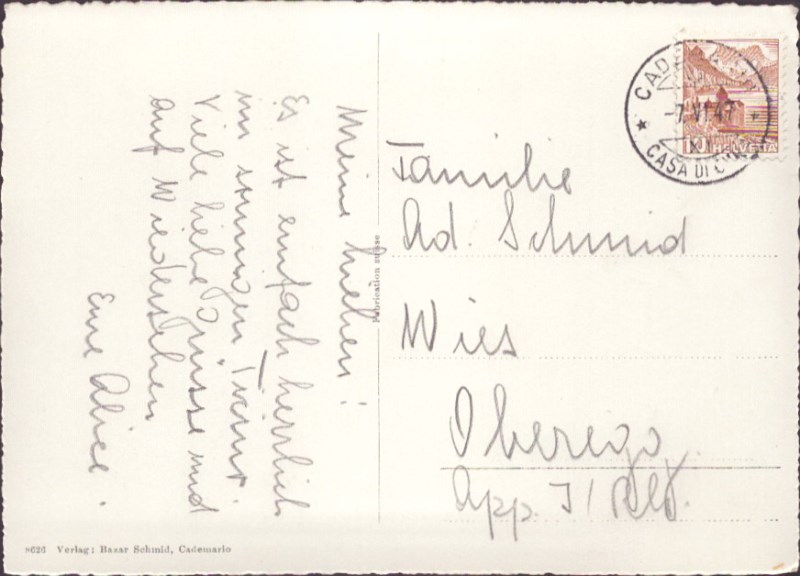 Meine Lieben!
Es ist einfach herrlich
im sonnigen Tessin.
Viele liebe Grüsse und
auf Wiedersehen
Eure Alice.
Fabrication suisse
Familie
Ad. Schmid
Wies
Oberegg
App. I/Rhd.
-7.VI.47
CASA DI
10 HELVETIA
8626 Verlag: Bazar Schmid, Cademario